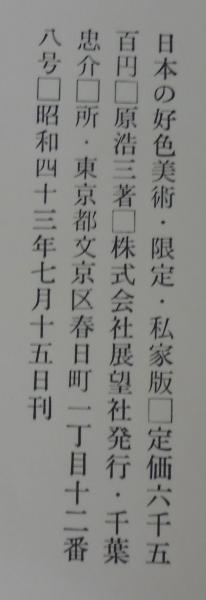 日本の好色美術・限定・私家版□定価六千五
百円□原浩三著□株式会社展望社発行・千葉
忠介□所・東京都文京区春日町一丁目十二番
八号□昭和四十三年七月十五日刊